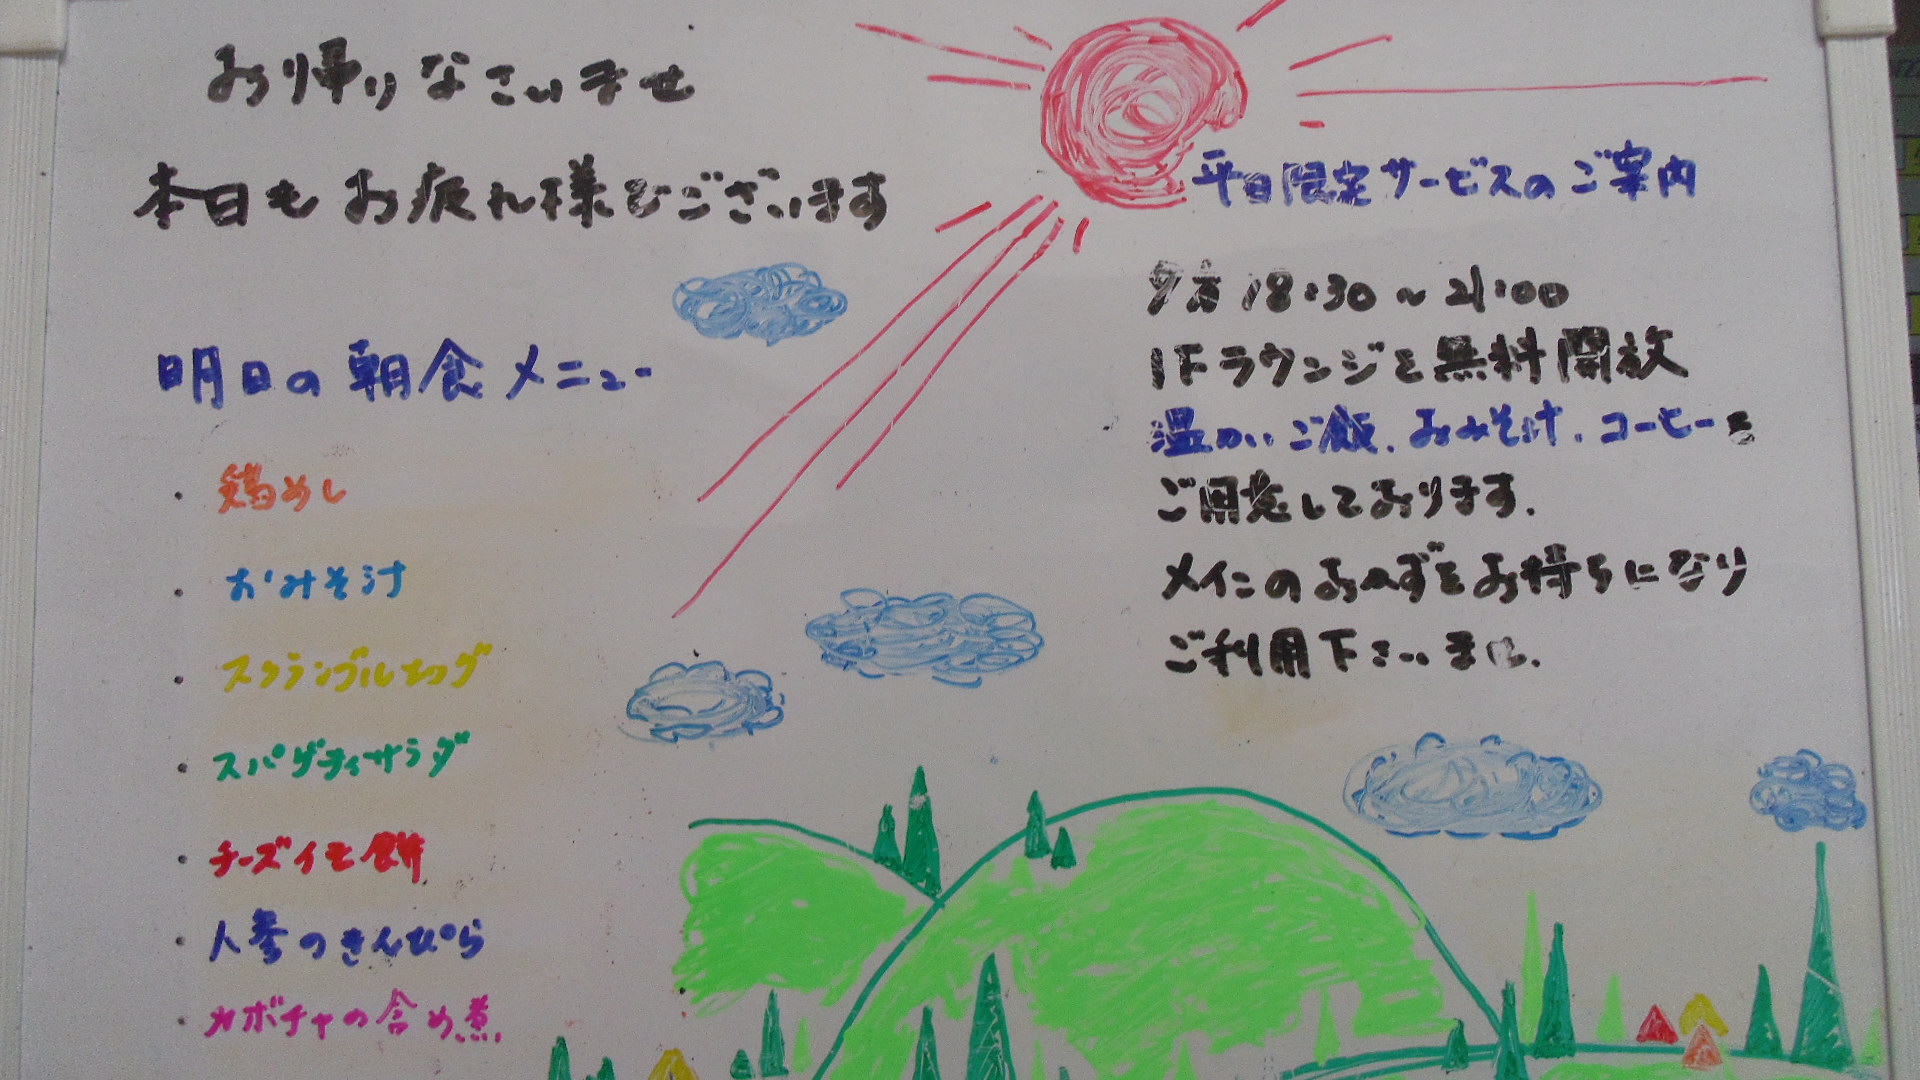 お帰りなさいませ
本日もお疲れ様でございます
明日の朝食メニュー
・鶏めし
・おみそ汁
・スクランブルエッグ
・スパゲティサラダ
・チーズイモ餅
・人参のきんぴら
・カボチャの含め煮
平日限定サービスのご案内
夕方 18:30～21:00
1Fラウンジを無料開放
温かいご飯、おみそ汁、コーヒーを
ご用意しております.
メインのおかずをお持ちになり
ご利用下さいませ.